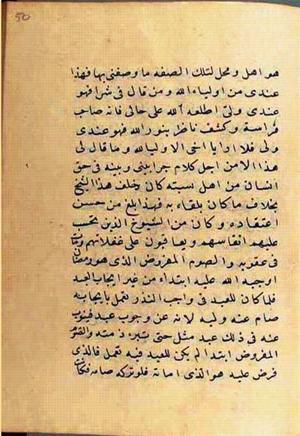 50
هو اهل ومحل لتلك الصفه ما وصفنى بها فهذا
عندى من اولياء الله ومن قال فى شرا فهو
عندى ولى اطلعه الله على حالى فانه صاحب
فراسة وكشف ناظر بنور الله فهو عندى
ولى فلا ارى يا اخى الا ولياء لله وما قال لى
هذا الا من اجل كلام جرا بينى وبينه فى حق
انسان من اهل سبتة كان وخلف هذا الشيخ
بخلاف ما كان يلقاه به فهذا بلغ من حسن
اعتقاده وكان من الشيوخ الذين تحسب
عليهم انفاسهم ويعاقبون على غفلاتهم ومات
فى عقوبة والصوم المفروض الذى هو رمضان
اوجبه الله عليه ابتداء من غير ايجاب العبد
فلما كان للعبد فى واجب النذر تعمل بايجابه
صام عنه وليه لانه عن وجوب عبد فينوب
عنه فى ذلك عبد مثل حتى تبرء ذمته والصوم
المفروض ابتدا لم يكن للعبد فيه تعمل فالذى
فرض عليه هو الذى اماته فلو تركه صامه فكانت